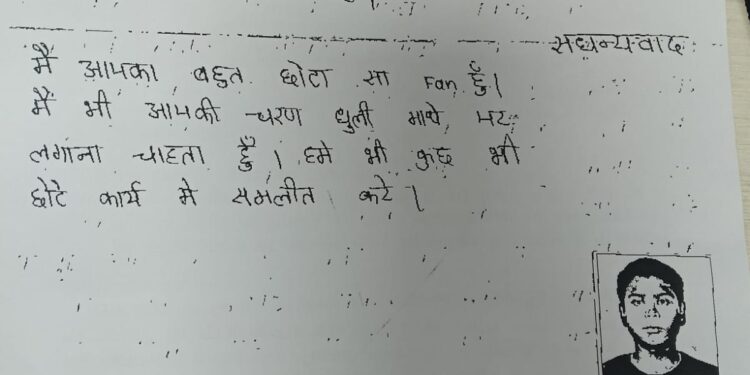 सधन्यवाद
मैं आपका बहुत छोटा सा Fan हुँ।
मैं भी आपकी चरण धुली माथे पर
लगाना चाहता हुँ। हमे भी कुछ भी
छोटे कार्य मे समलीत करे।